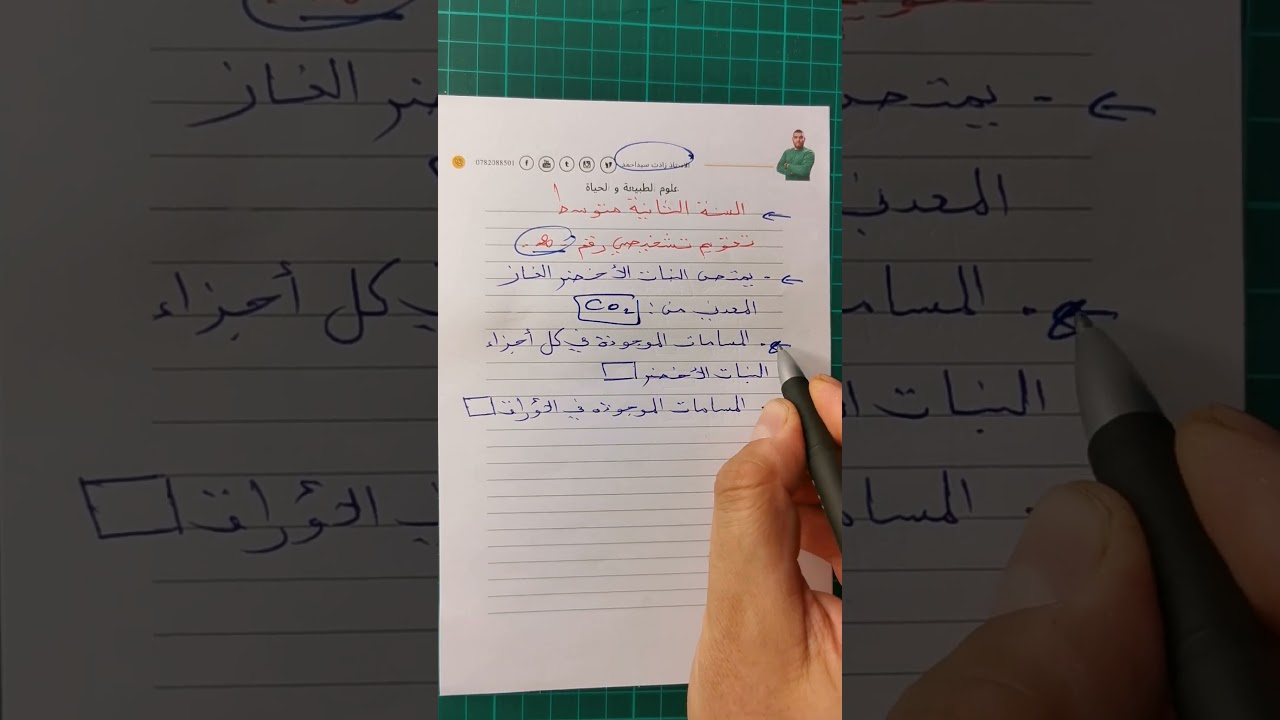 الأستاذ زادت سيداحمد 0782088501
علوم الطبيعة و الحياة
السنة الثانية متوسط
تقويم تشخيصي رقم
- يمتص النبات الأخضر الغاز
المعدني من: CO₂
. المسامات الموجودة في كل أجزاء
النبات الأخضر
. المسامات الموجودة في